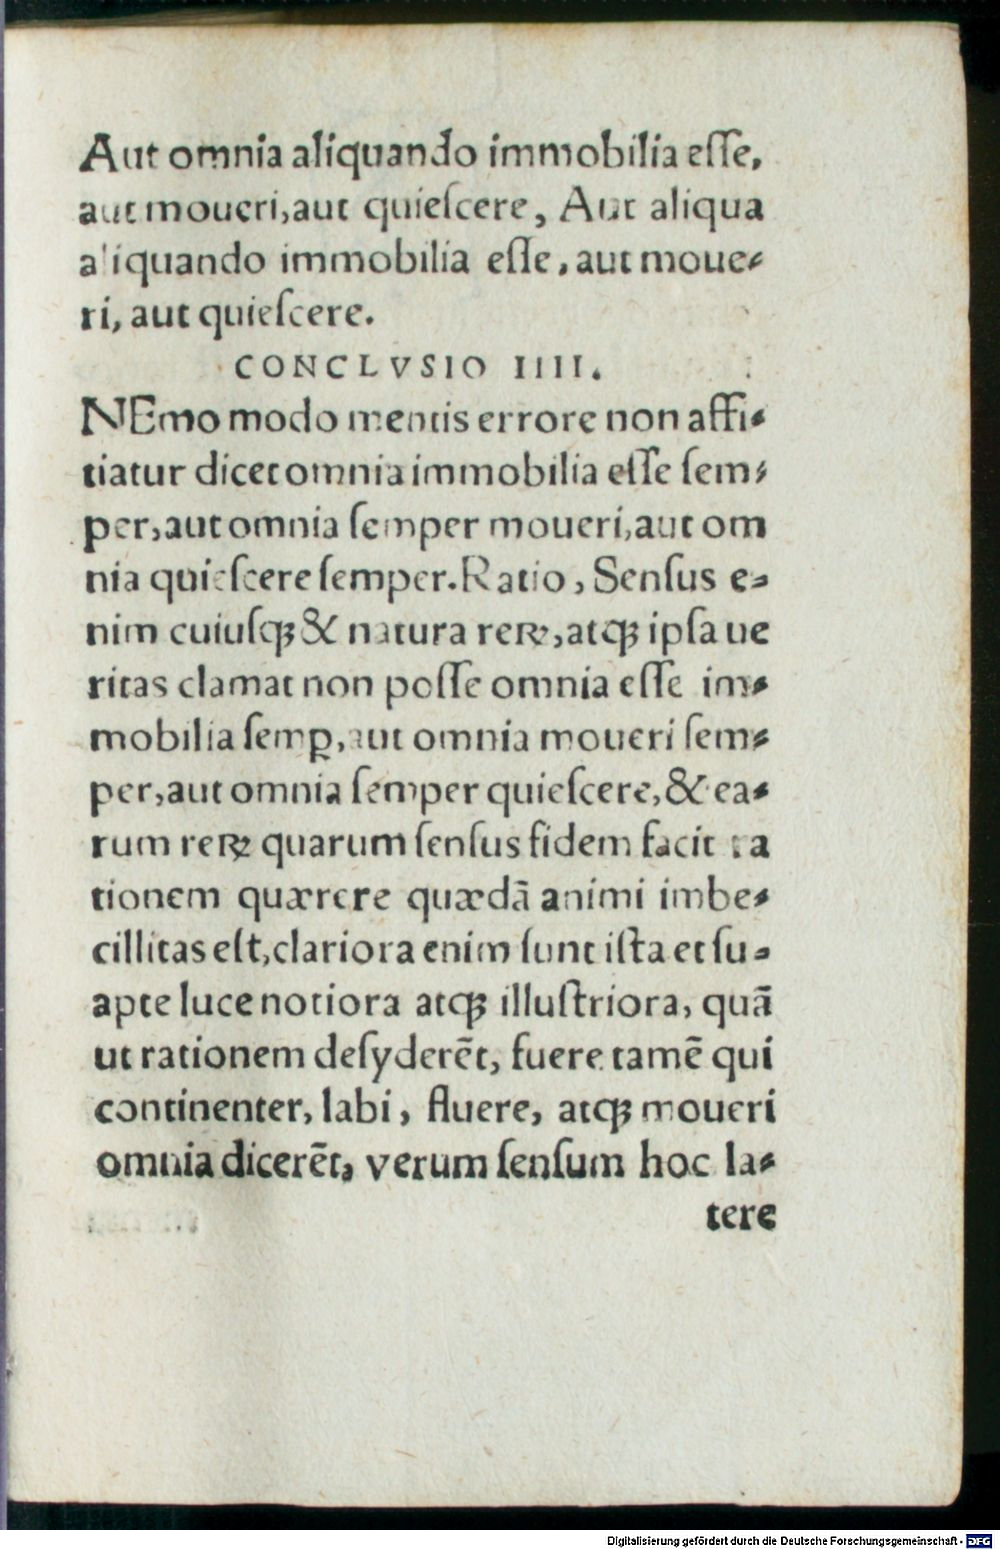 Aut omnia aliquando immobilia eſſe,
aut moueri, aut quieſcere, Aut aliqua
aliquando immobilia eſſe, aut moue-
ri, aut quieſcere.
CONCLVSIO IIII.
NEmo modo mentis errore non affi-
tiatur dicet omnia immobilia eſſe ſem-
per, aut omnia ſemper moueri, aut om
nia quieſcere ſemper. Ratio, Senſus e-
nim cuiuſqꝫ & natura reꝝ, atqꝫ ipſa ue
ritas clamat non poſſe omnia eſſe im-
mobilia ſemꝑ, aut omnia moueri ſem-
per, aut omnia ſemper quieſcere, & ea-
rum reꝝ quarum ſenſus fidem facit ra
tionem quærere quædā animi imbe-
cillitas eſt, clariora enim ſunt iſta et ſu-
apte luce notiora atqꝫ illuſtriora, quā
ut rationem deſyderēt, fuere tamē qui
continenter, labi, fluere, atqꝫ moueri
omnia dicerēt, verum ſenſum hoc la-
tere
Digitalisierung gefördert durch die Deutsche Forschungsgemeinschaft - DFG